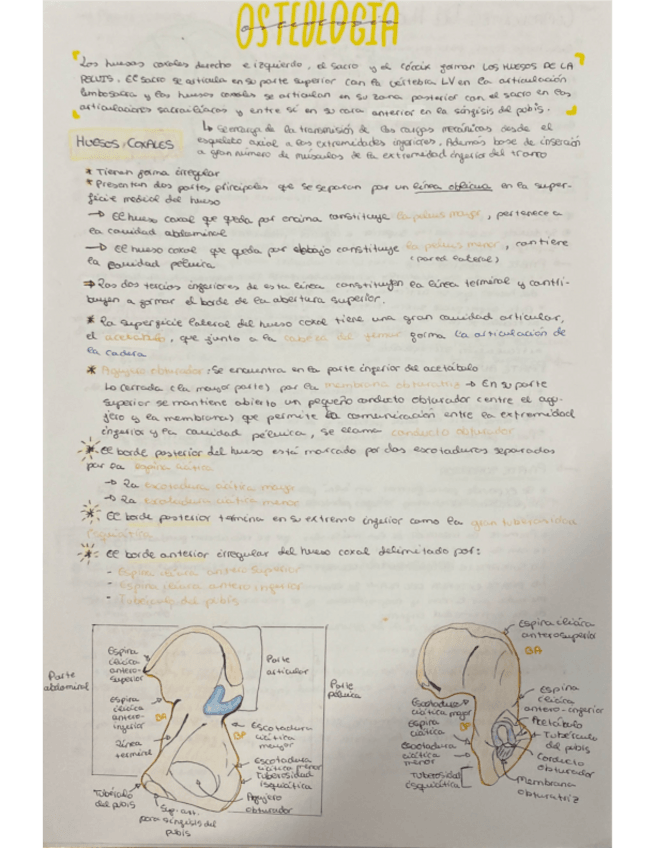 OSTEOLOGIA
osteología
Los huesos coxales derecho e izquierdo, el sacro y el cóccix forman LOS HUESOS DE LA
PELVIS. El sacro se articula en su parte superior con la vértebra LV en la articulación
lumbosacra y los huesos coxales se articulan en su zona posterior con el sacro en las
articulaciones sacroilíacas y entre sí en su cara anterior en la sínfisis del pubis.
HUESOS COXALES
↳ Se encarga de la transmisión de las cargas mecánicas desde el
esqueleto axial a las extremidades inferiores. Además base de inserción
a gran número de músculos de la extremidad inferior del tronco
* Tienen forma irregular
* Presentan dos partes principales que se separan por un línea oblicua en la super-
ficie medical del hueso
→ El hueso coxal que queda por encima constituye la pelvis mayor, pertenece a
la cavidad abdominal
→ El hueso coxal que queda por abbajo constituye la pelvis menor, contiene
la cavidad pélvica (pared lateral)
⇒ Los dos tercios inferiores de esta línea constituyen la línea terminal y contri-
buyen a formar el borde de la abertura superior.
* La superficie lateral del hueso coxal tiene una gran cavidad articular,
el acetábulo, que junto a la cabeza del femur forma la articulación de
la cadera
* Agujero obturador: Se encuentra en la parte inferior del acetábulo
Lo cerrada (la mayor parte) por la membrana obturatriz → En su parte
superior se mantiene abierto un pequeño conducto obturador (entre el agu-
jero y la membrana) que permite la comunicación entre la extremidad
inferior y la cavidad pélvica, se llama conducto obturador
* El borde posterior del hueso está marcado por dos escotaduras separados
por la espina ciática
→ La escotadura ciática mayor
→ La escotadura ciática menor
* El borde posterior termina en su extremo inferior como la gran tuberosidad
isquiática
* El borde anterior irregular del hueso coxal delimitado por:
- Espina ilíaca antero superior
- Espina ilíaca antero inferior
- Tubérculo del pubis
Parte
abdominal
Espina
ilíaca
antero-
superior
BA
Espina
ilíaca
antero-
inferior
Línea
terminal
Tubérculo
del pubis
Sup. art.
para sínfisis del
pubis
Parte
articular
Parte
pélvica
BP
Escotadura
ciática
mayor
escotadura
ciática menor
Tuberosidad
isquiática
Agujero
obturador
Espina ilíaca
anterosuperior
BA
Espina
ilíaca
antero-inferior
Acetábulo
Tubérculo
del pubis
Conducto
obturador
Membrana
obturatriz
Escotadura
ciática mayor
Espina
ciática
BP
Escotadura
ciática
menor
Tuberosidad
isquiática